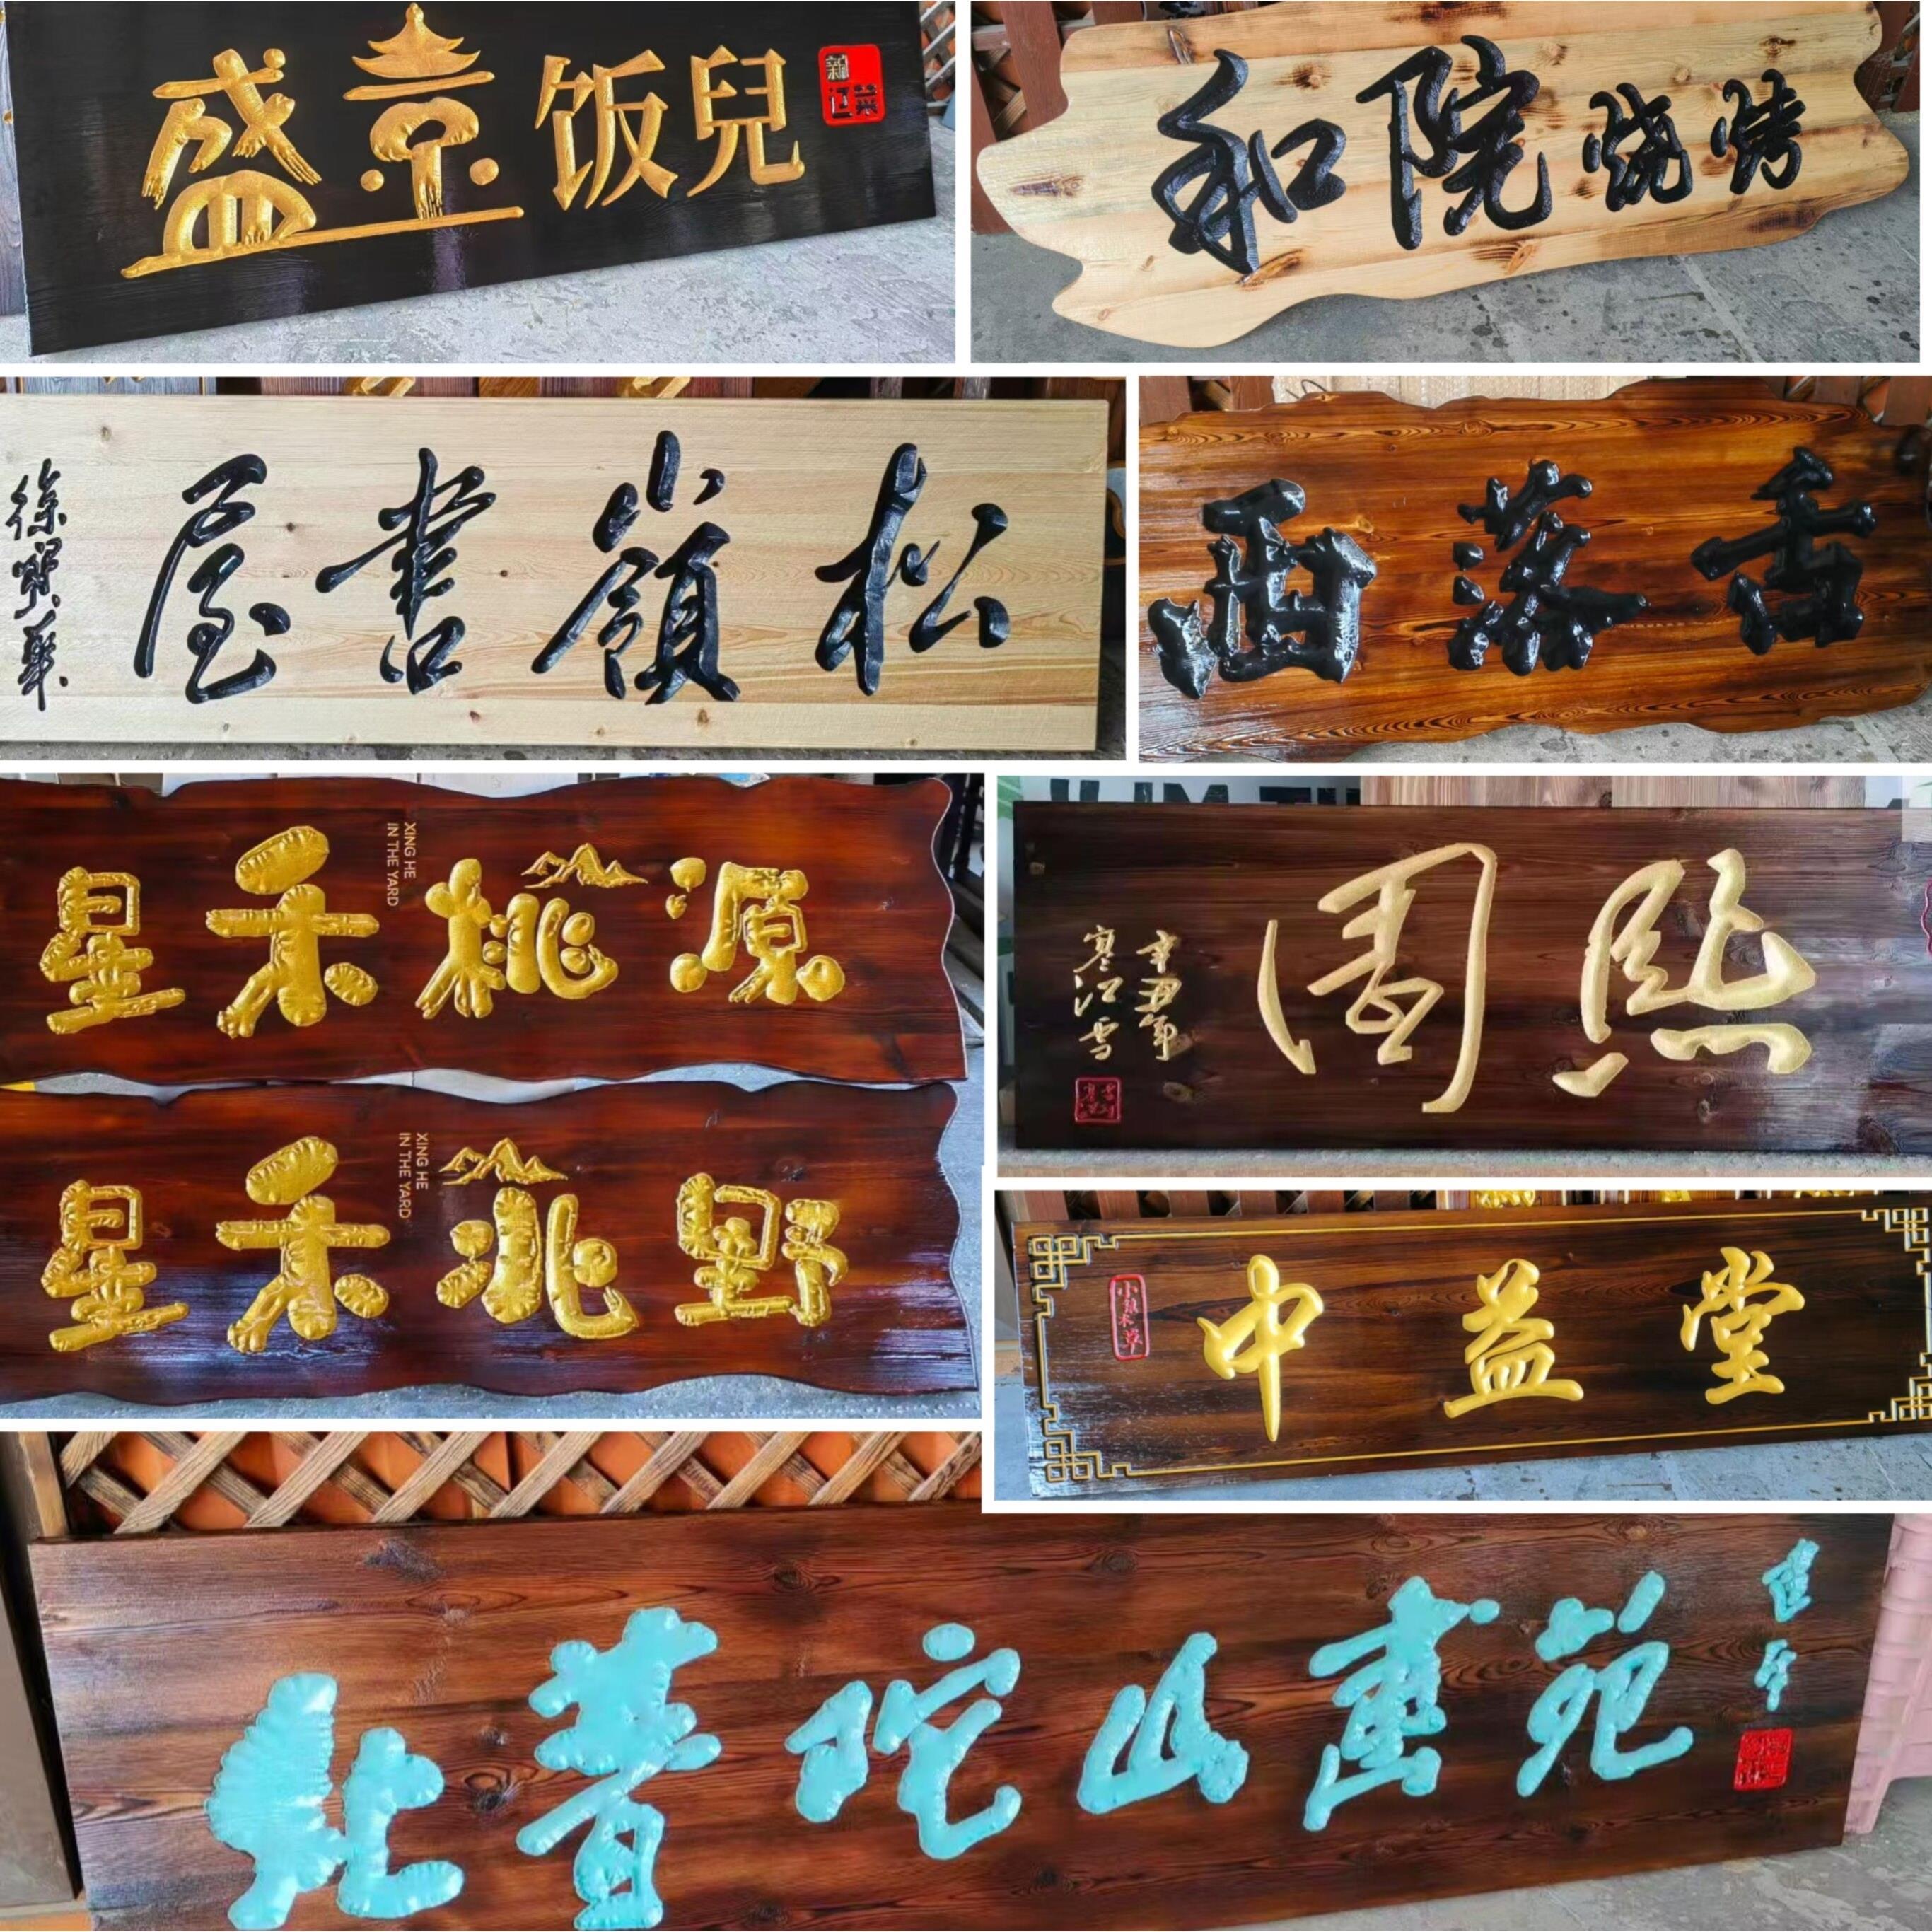 盛京饭兒
和院烧烤
松嶺書屋
徐贤華
舌落酉
星禾桃源
XING HE
IN THE YARD
熙園
辛丑年
寒江雪
星禾桃野
XING HE
IN THE YARD
中益堂
小泉本草
北普陀山書苑